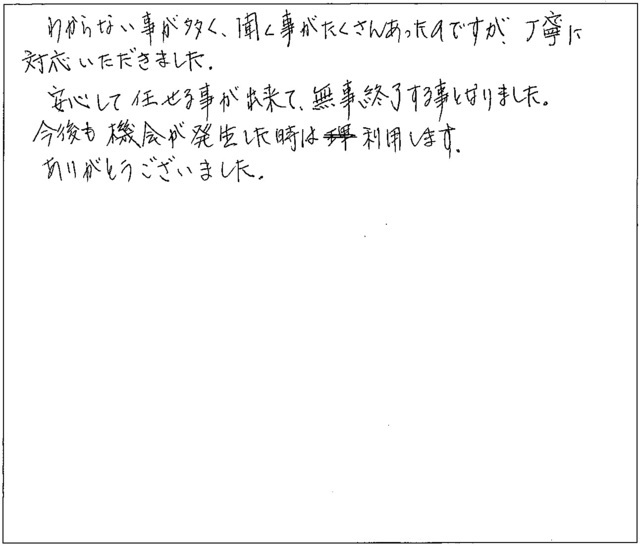 わからない事が多く、聞く事がたくさんあったのですが、丁寧に
対応いただきました。
安心して任せる事が出来て、無事終了する事となりました。
今後も機会が発生した時は利用します。
ありがとうございました。